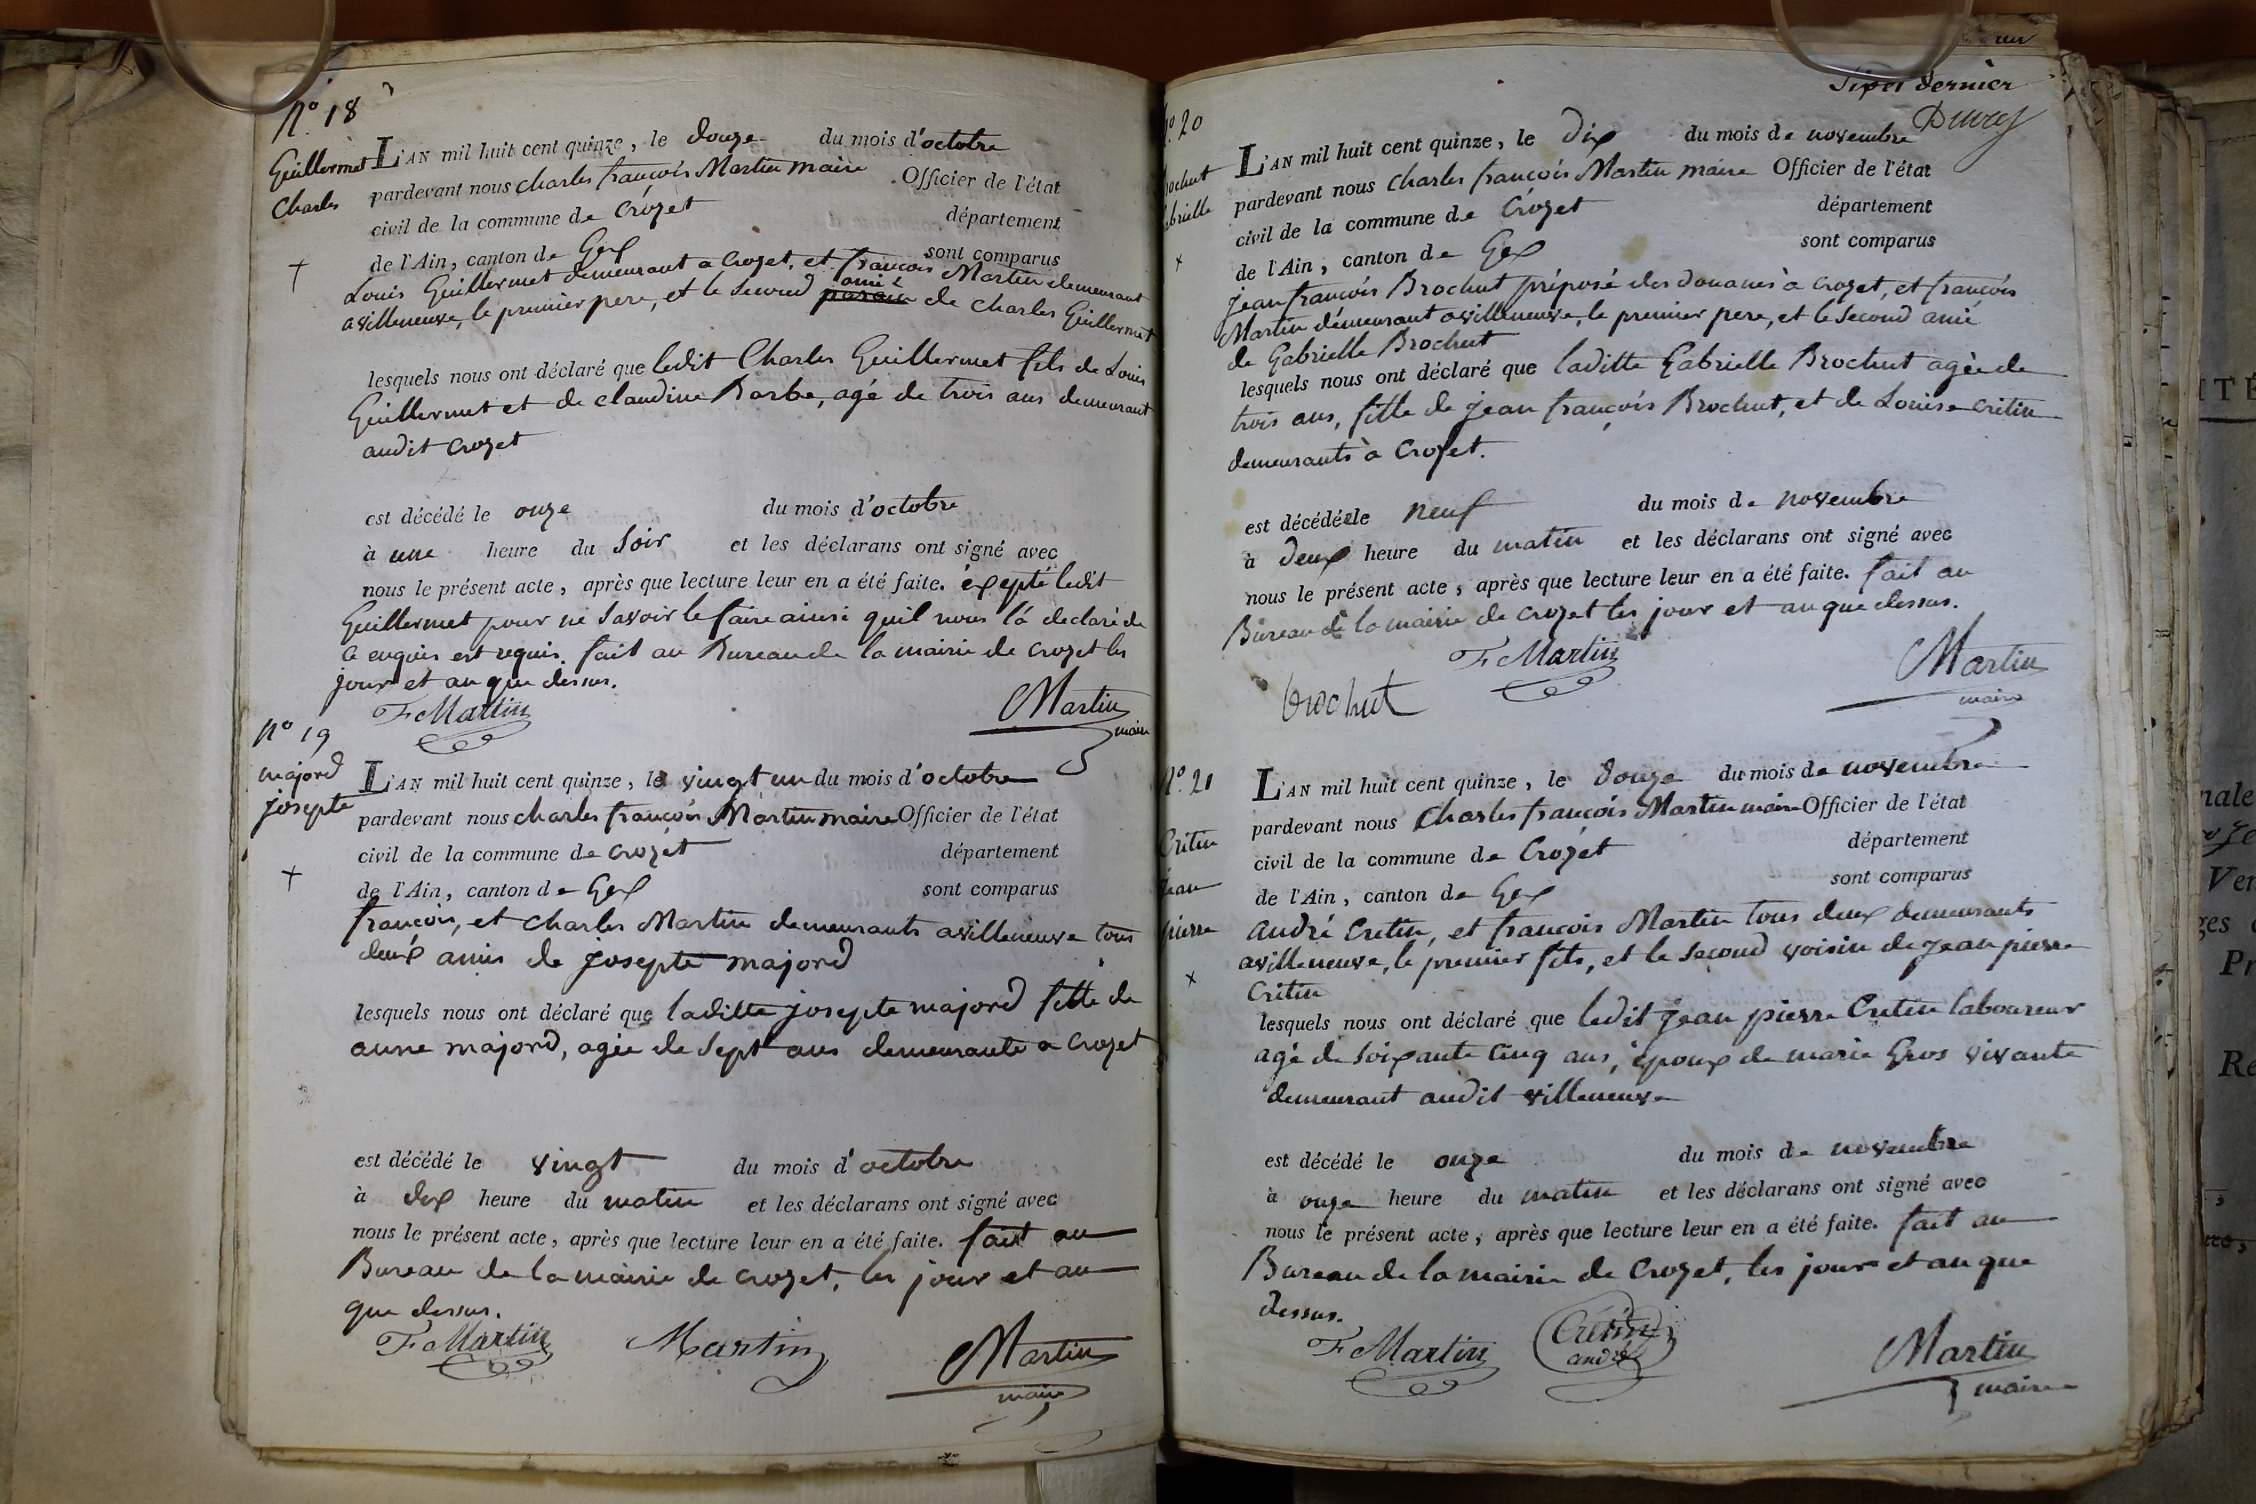 N.o 18
Guillermet
Charles
L'AN mil huit cent quinze, le douze du mois d'octobre
pardevant nous charles françois Martin maire Officier de l'état
civil de la commune de Crozet département
de l'Ain, canton de Gex sont comparus
Louis Guillermet demeurant a Crozet, et françois Martin demeurant
a villeneuve, le premier pere, et le second amie de Charles Guillermet
lesquels nous ont déclaré que ledit Charles Guillermet fils de Louis
Guillermet et de claudine Barbe, agé de trois ans demeurant
audit Crozet
est décédé le onze du mois d'octobre
à une heure du soir et les déclarans ont signé avec
nous le présent acte, après que lecture leur en a été faite. éxepté ledit
Guillermet pour ne savoir le faire ainsi quil nous la declaré de
ce enquis est requis. fait au Bureau de la mairie de crozet les
jour et an que dessus.
F Martin
Martin
maire
N.o 19
majord
josepte
L'AN mil huit cent quinze, le vingt un du mois d'octobre
pardevant nous charles françois Martin maire Officier de l'état
civil de la commune de crozet département
de l'Ain, canton de Gex sont comparus
françois, et charles Martin demeurants a villeneuve tous
deux amis de josepte majord
lesquels nous ont déclaré que laditte josepte majord fille de
anne majord, agée de sept ans demeurante a Crozet
est décédé le vingt du mois d'octobre
à dix heure du matin et les déclarans ont signé avec
nous le présent acte, après que lecture leur en a été faite. fait au
Bureau de la mairie de crozet, les jour et an
que dessus.
F Martin
Martin
Martin
maire
Six et dernier
N.o 20
L'AN mil huit cent quinze, le dix du mois de novembre
pardevant nous charles françois Martin maire Officier de l'état
civil de la commune de Crozet département
de l'Ain, canton de Gex sont comparus
jean françois Brochut préposé des douanes à crozet, et françois
Martin démeurant a villeneuve, le premier pere, et le second amie
de Gabrielle Brochut
lesquels nous ont déclaré que laditte Gabrielle Brochut agée de
trois ans, fille de jean françois Brochut, et de Louise critin
demeurants à Crozet.
est décédée le neuf du mois de novembre
à deux heure du matin et les déclarans ont signé avec
nous le présent acte, après que lecture leur en a été faite. fait au
Bureau de la mairie de crozet les jour et an que dessus.
F Martin
Martin
maire
brochut
N.o 21
Critin
jean
pierre
L'AN mil huit cent quinze, le douze du mois de novembre
pardevant nous Charles françois Martin maire Officier de l'état
civil de la commune de Crozet département
de l'Ain, canton de Gex sont comparus
andré Critin, et françois Martin tous deux demeurants
a villeneuve, le premier fils, et le second voisin de jean pierre
Critin
lesquels nous ont déclaré que ledit jean pierre Critin laboureur
agé de soixante cinq ans, époux de marie Gros vivante
demeurant audit villeneuve
est décédé le onze du mois de novembre
à onze heure du matin et les déclarans ont signé avec
nous le présent acte, après que lecture leur en a été faite. fait au
Bureau de la mairie de Crozet, les jour et an que
dessus.
F Martin
Crétin
andré
Martin
maire